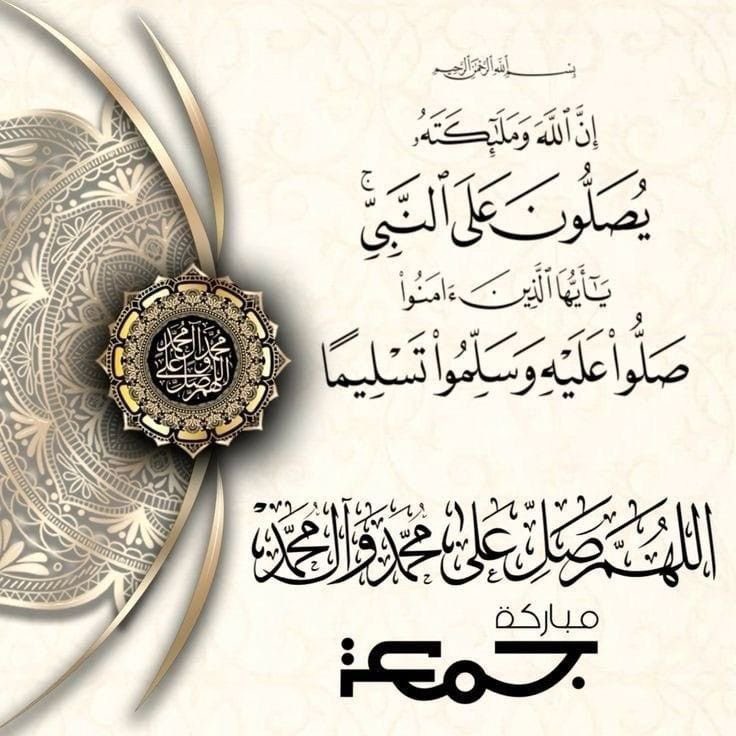 بِسْمِ ٱللَّهِ ٱلرَّحْمَٰنِ ٱلرَّحِيمِ
إِنَّ ٱللَّهَ وَمَلَٰٓئِكَتَهُۥ
يُصَلُّونَ عَلَى ٱلنَّبِيِّۚ
يَٰٓأَيُّهَا ٱلَّذِينَ ءَامَنُوا۟
صَلُّوا۟ عَلَيْهِ وَسَلِّمُوا۟ تَسْلِيمًا
اللهم صل على محمد وآل محمد
اللهُمَّ صَلِّ عَلى مُحَمَّد وَآل مُحَمَّدْ
مباركة
جمعة